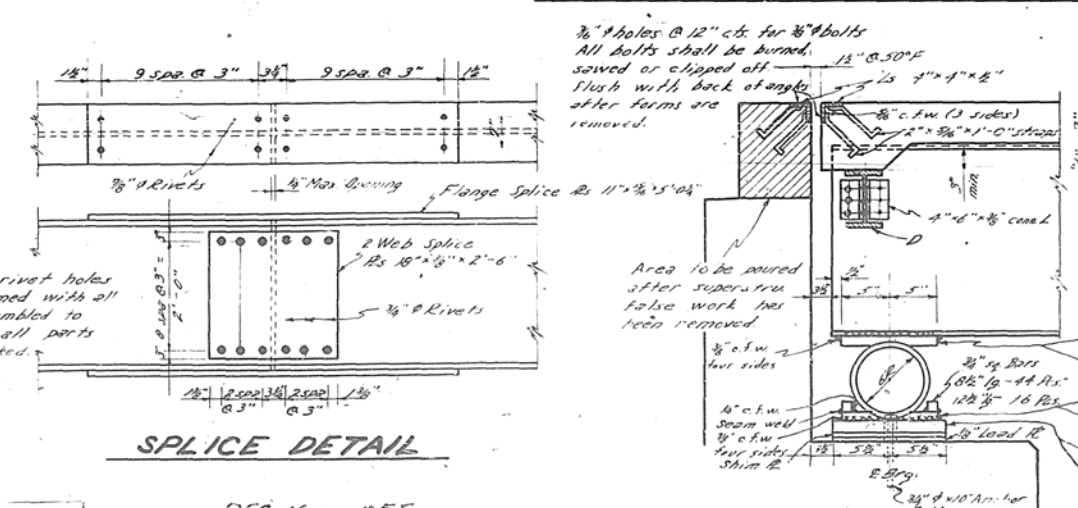 1½" 9 spa. @ 3" 3¼" 9 spa. @ 3" 1½"
2"
⅞" ⌀ Rivets
¼" Max. Opening
Flange Splice
5'-0¼"
2 Web Splice
2'-6"
rivet holes
med with all
mbled to
all parts
ted.
3" 8 spa @ 3" = 3"
2'-0"
¾" ⌀ Rivets
2 spa 3¼ 2 spa
@ 3" @ 3"
SPLICE DETAIL
⌀ holes @ 12" cts. for ⌀ bolts
All bolts shall be burned,
sawed or clipped off
flush with back of angles
after forms are
removed.
1½" @ 50°F
Ls 4" x 4" x ½"
c.f.w. (3 sides)
2" x 5/16" x 1'-0" straps
3"
min.
4" x 6" x ⅜" conn. L
D
Area to be poured
after superstru.
false work has
been removed.
1½"
3½ 5" 5"
c.f.w.
four sides
¾" sq. Bars
8½" lg - 44 Pcs.
12½" lg - 16 Pcs.
¼" c.f.w.
seam weld
c.f.w
four sides
Shim ℄
Load ℄
5½" 5½"
℄ Brg.
¾" ⌀ x 10" Anchor